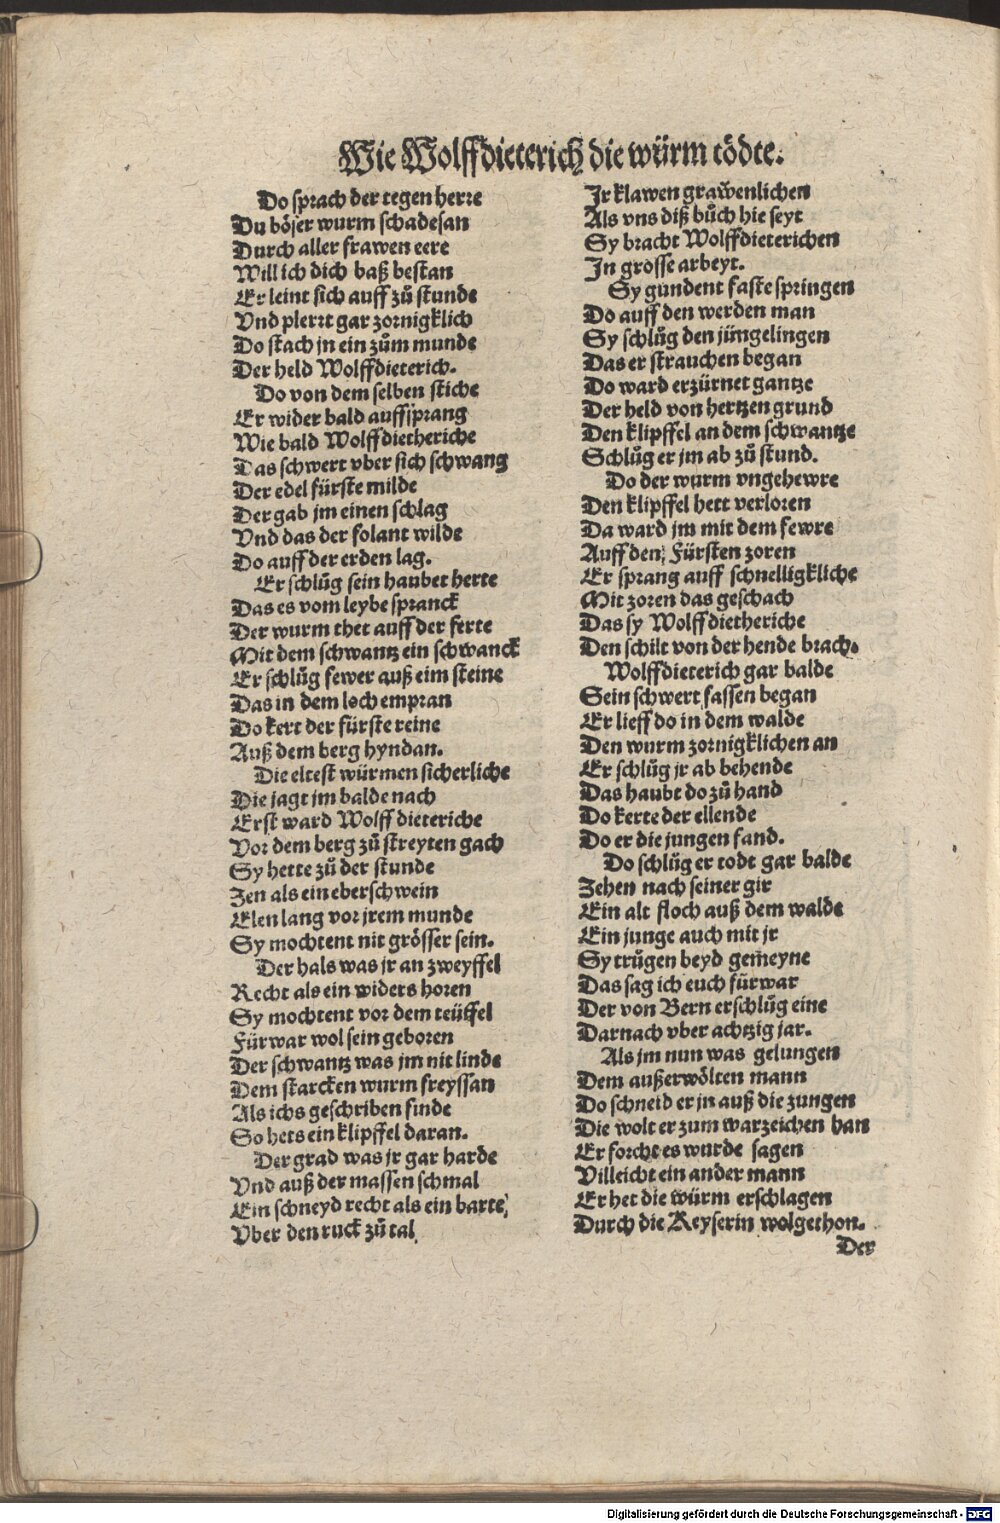 Wie Wolffdieterich die würm tödte.
Do sprach der tegen herre
Du böser wurm schadesan
Durch aller frawen eere
Will ich dich baß bestan
Er leint sich auff zů stunde
Vnd plerrt gar zornigklich
Do stach jn ein zům munde
Der held Wolffdieterich.
Do von dem selben stiche
Er wider bald auffsprang
Wie bald Wolffdietheriche
Das schwert vber sich schwang
Der edel fürste milde
Der gab jm einen schlag
Vnd das der folant wilde
Do auff der erden lag.
Er schlůg sein haubet herte
Das es vom leybe spranck
Der wurm thet auff der ferte
Mit dem schwantz ein schwanck
Er schlůg fewer auß eim steine
Das in dem loch empran
Do kert der fürste reine
Auß dem berg hyndan.
Die eltest würmen sicherliche
Die jagt jm balde nach
Erst ward Wolffdieteriche
Vor dem berg zů streyten gach
Sy hette zů der stunde
Zen als ein eberschwein
Elen lang vor jrem munde
Sy mochtent nit grösser sein.
Der hals was jr an zweyffel
Recht als ein widers horen
Sy mochtent vor dem teüffel
Fürwar wol sein geboren
Der schwantz was jm nit linde
Dem starcken wurm freyssan
Als ichs geschriben finde
So hets ein klipffel daran.
Der grad was jr gar harde
Vnd auß der massen schmal
Ein schneyd recht als ein barte
Vber den ruck zů tal
Jr klawen grawenlichen
Als vns diß bůch hie seyt
Sy bracht Wolffdieterichen
Jn grosse arbeyt.
Sy gundent faste springen
Do auff den werden man
Sy schlůg den jüngelingen
Das er strauchen began
Do ward erzürnet gantze
Der held von hertzen grund
Den klipffel an dem schwantze
Schlůg er jm ab zů stund.
Do der wurm vngehewre
Den klipffel hett verloren
Da ward jm mit dem fewre
Auff den Fürsten zoren
Er sprang auff schnelligkliche
Mit zoren das geschach
Das sy Wolffdietheriche
Den schilt von der hende brach.
Wolffdieterich gar balde
Sein schwert fassen began
Er lieff do in dem walde
Den wurm zornigklichen an
Er schlůg jr ab behende
Das haubt do zů hand
Do kerte der ellende
Do er die jungen fand.
Do schlůg er todt gar balde
Zehen nach seiner gir
Ein alt floch auß dem walde
Ein junge auch mit jr
Sy trůgen beyd gemeyne
Das sag ich euch fürwar
Der von Bern erschlůg eine
Darnach vber achtzig jar.
Als jm nun was gelungen
Dem außerwölten mann
Do schneid er jn auß die zungen
Die wolt er zum warzeichen han
Er forcht es wurde sagen
Villeicht ein ander mann
Er het die würm erschlagen
Durch die Keyserin wolgethon.
Der
Digitalisierung gefördert durch die Deutsche Forschungsgemeinschaft - DFG